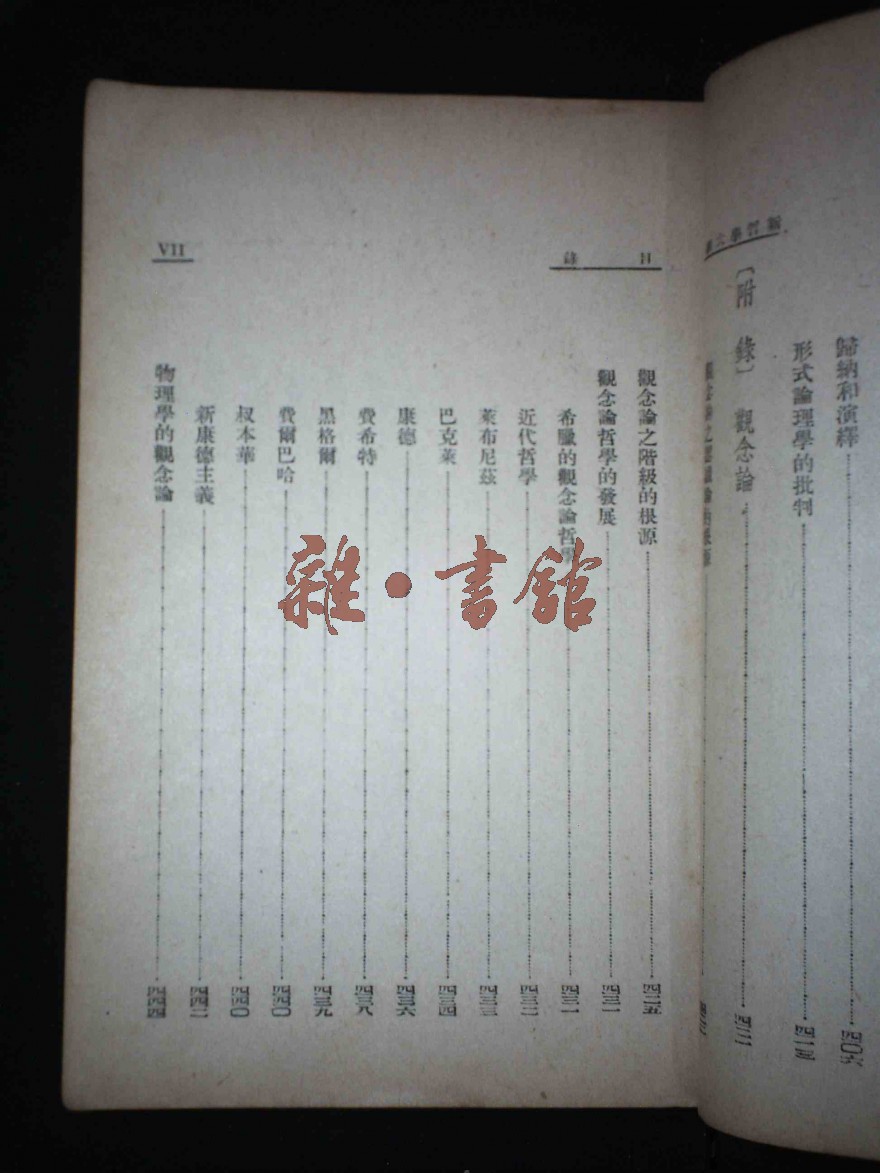 歸納和演繹……四〇六
形式論理學的批判……四一
〔附錄〕觀念論……四二一
目錄
VII
觀念論之階級的根源……四二五
觀念論哲學的發展……四三一
希臘的觀念論哲學……四三一
近代哲學……四三二
萊布尼茲……四三三
巴克萊……四三四
康德……四三六
費希特……四三八
黑格爾……四三九
費爾巴哈……四四〇
叔本華……四四〇
新康德主義……四四二
物理學的觀念論……四四四
雜·書館